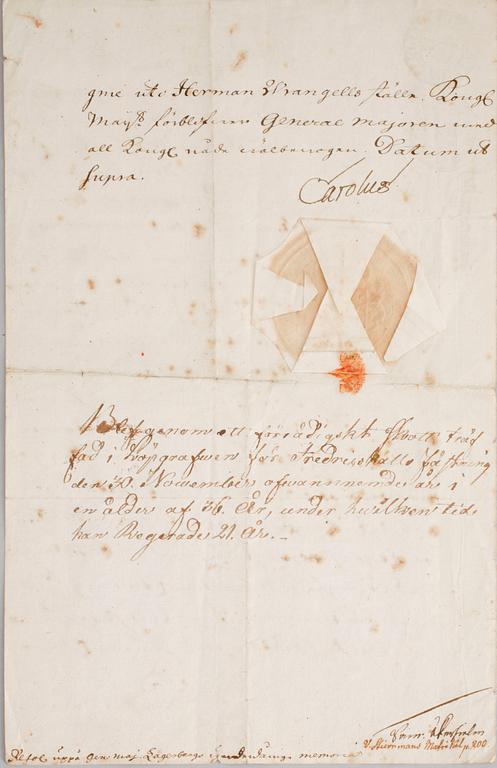 gne uti Herman Wrangells ställe. Kongl
Maÿtt förblifwer General majoren med
all Kongl nåde wälbewogen. Datum ut
supra.
Carolus
Blef genom ett försåtligskt skott träf
fad i löpgrafwen för Fredrichshalls fästning
den 30. November ofwannemde år i
en ålder af 36. År, under hwilken tid
han Regerade 21. År. –
V. Stiernmans p. 200.
Resol. uppå Gen. Maj. Lagerbergs memorial